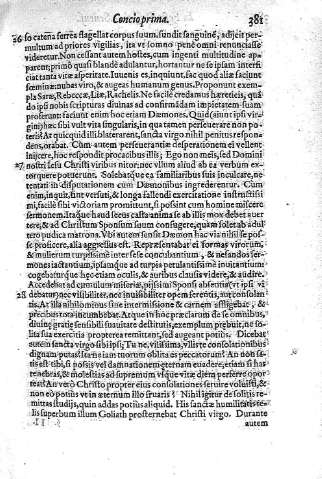 Concio prima. 381
26 so catena ferrea flagellat corpus suum, fundit sanguinē, adjicit per-
multum ad priores vigilias, ita vt somno penè omni renunciasse
videretur. Non cessant autem hostes, cum ingenti multitudine ap-
parent; primò quasi blandè adulantur, hortantur ne se ipsam interfi-
ciat tanta vitæ asperitate. Iuuenis es, inquiunt, fac quod aliæ faciunt
fœminæ: nube viro, & augeas humanum genus. Proponunt exem-
pla Saræ, Rebeccæ, Liæ, Rachelis. Ne facilè credamus hæreticis, quā-
do ipsi nobis scripturas diuinas ad confirmādam impietatem suam
proferunt: faciunt enim hoc etiam Dæmones. Quid
aiunt ipsi vir-
ginj: hæc sibi vult vita singularis, in qua tamen perseuerare non po-
teris? At quicquid illi blaterarent, sancta virgo nihil penitus respon-
dens, orabat. Cum autem perseuerantiæ desperationem ei vellent
iniicere, hoc respondit procacibus illis; Ego non meis, sed Domini
27 nostri Iesu Christi viribus nitor: nec vllum aliud ab ea verbum ex-
torquere potuerunt. Solebatque ea familiaribus suis inculcare, ne
tentari in disputationem cum Dæmonibus ingrederentur. Cum
enim, inquit, sint versuti, & longa fallendi exercitatione instructissi-
mi, facilè sibi victoriam promittunt, si possint cum homine miscere
sermonem. Itaque haud secus casta anima se ab illis mox debet auer-
tere, & ad Christum Sponsum suum confugere, quàm solet ab adul-
tero pudica matrona. Vbi autem sensit Dæmon hac via nihil se pos-
se proficere, alia aggressus est. Repræsentabat ei formas virorum,
& mulierum turpissimè inter se se concubentium, & nefandos ser-
mones iactentium, ipsamque ad turpia petulantissimè inuitantium
cogebaturque hæc etiam oculis, & auribus clausis videre, & audire.
Accedebat ad cumulum miseriæ, piissimi Sponsi absentia: vt ipsi vi
28 debatur) nec visibiliter, nec inuisibiliter opem ferentis, aut consolan-
tis. At illa nihilominus sine intermissione & carnem affligebat, &
precibus tota incumbebat. Atque in hoc præclarum de se omnibus,
diuinę gratię sensibili suauitate destitutis, exemplum præbuit, ne so-
lita sua exercitia propterea remittant, sed augeant potius. Dicebat
autem sancta virgo sibi ipsi; Tu ne, vilissima, vlla te consolationibus
dignam putas? Iamne iam tuorum oblita es peccatorum? An non sa-
tis est tibi, si possis vel damnationem æternam euadere, etiam si has
tenebras, & molestias ad supremum vsque vitæ diem perferre opor-
teat? An verò Christo propter eius consolationes seruire voluisti, &
non eò potius vt in æternum illo fruaris? Nihil igitur de solitis re-
mittas studijs, quin addas potius aliquid. His sanctæ humilitatis te-
lis superbum illum Goliath prosternebat Christi virgo. Durante
autem